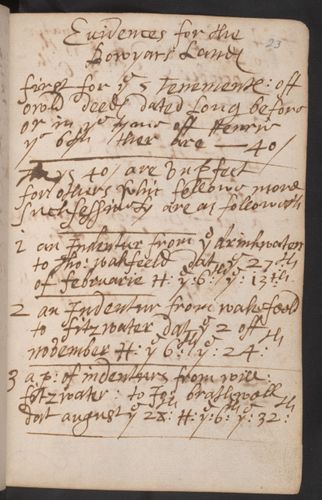 Euidences for the
23
Bowyars Land
first for yͤ 5 tenement: off
owld deeds dated Long before
or in yͤ time off Henrie
yͤ 6th ther are — 40/
Thes 40/ are
for others which follows more
sucksessiuely are as followeth
1 an Indentur from yͤ drinkwater
to Tho: wakfeeld dat yͤ 27th
of februarie H: yͤ: 6th: yͤ: 13th:
2 an Indentur from wakefeeld
to fitzwater dat yͤ 2 off
nouember H: yͤ 6th: yͤ: 24th:
3 a p: of indenturs from will:
fitzwater: to Jo: brathwall
dat august yͤ 28: H: yͤ: 6th: yͤ: 32th: